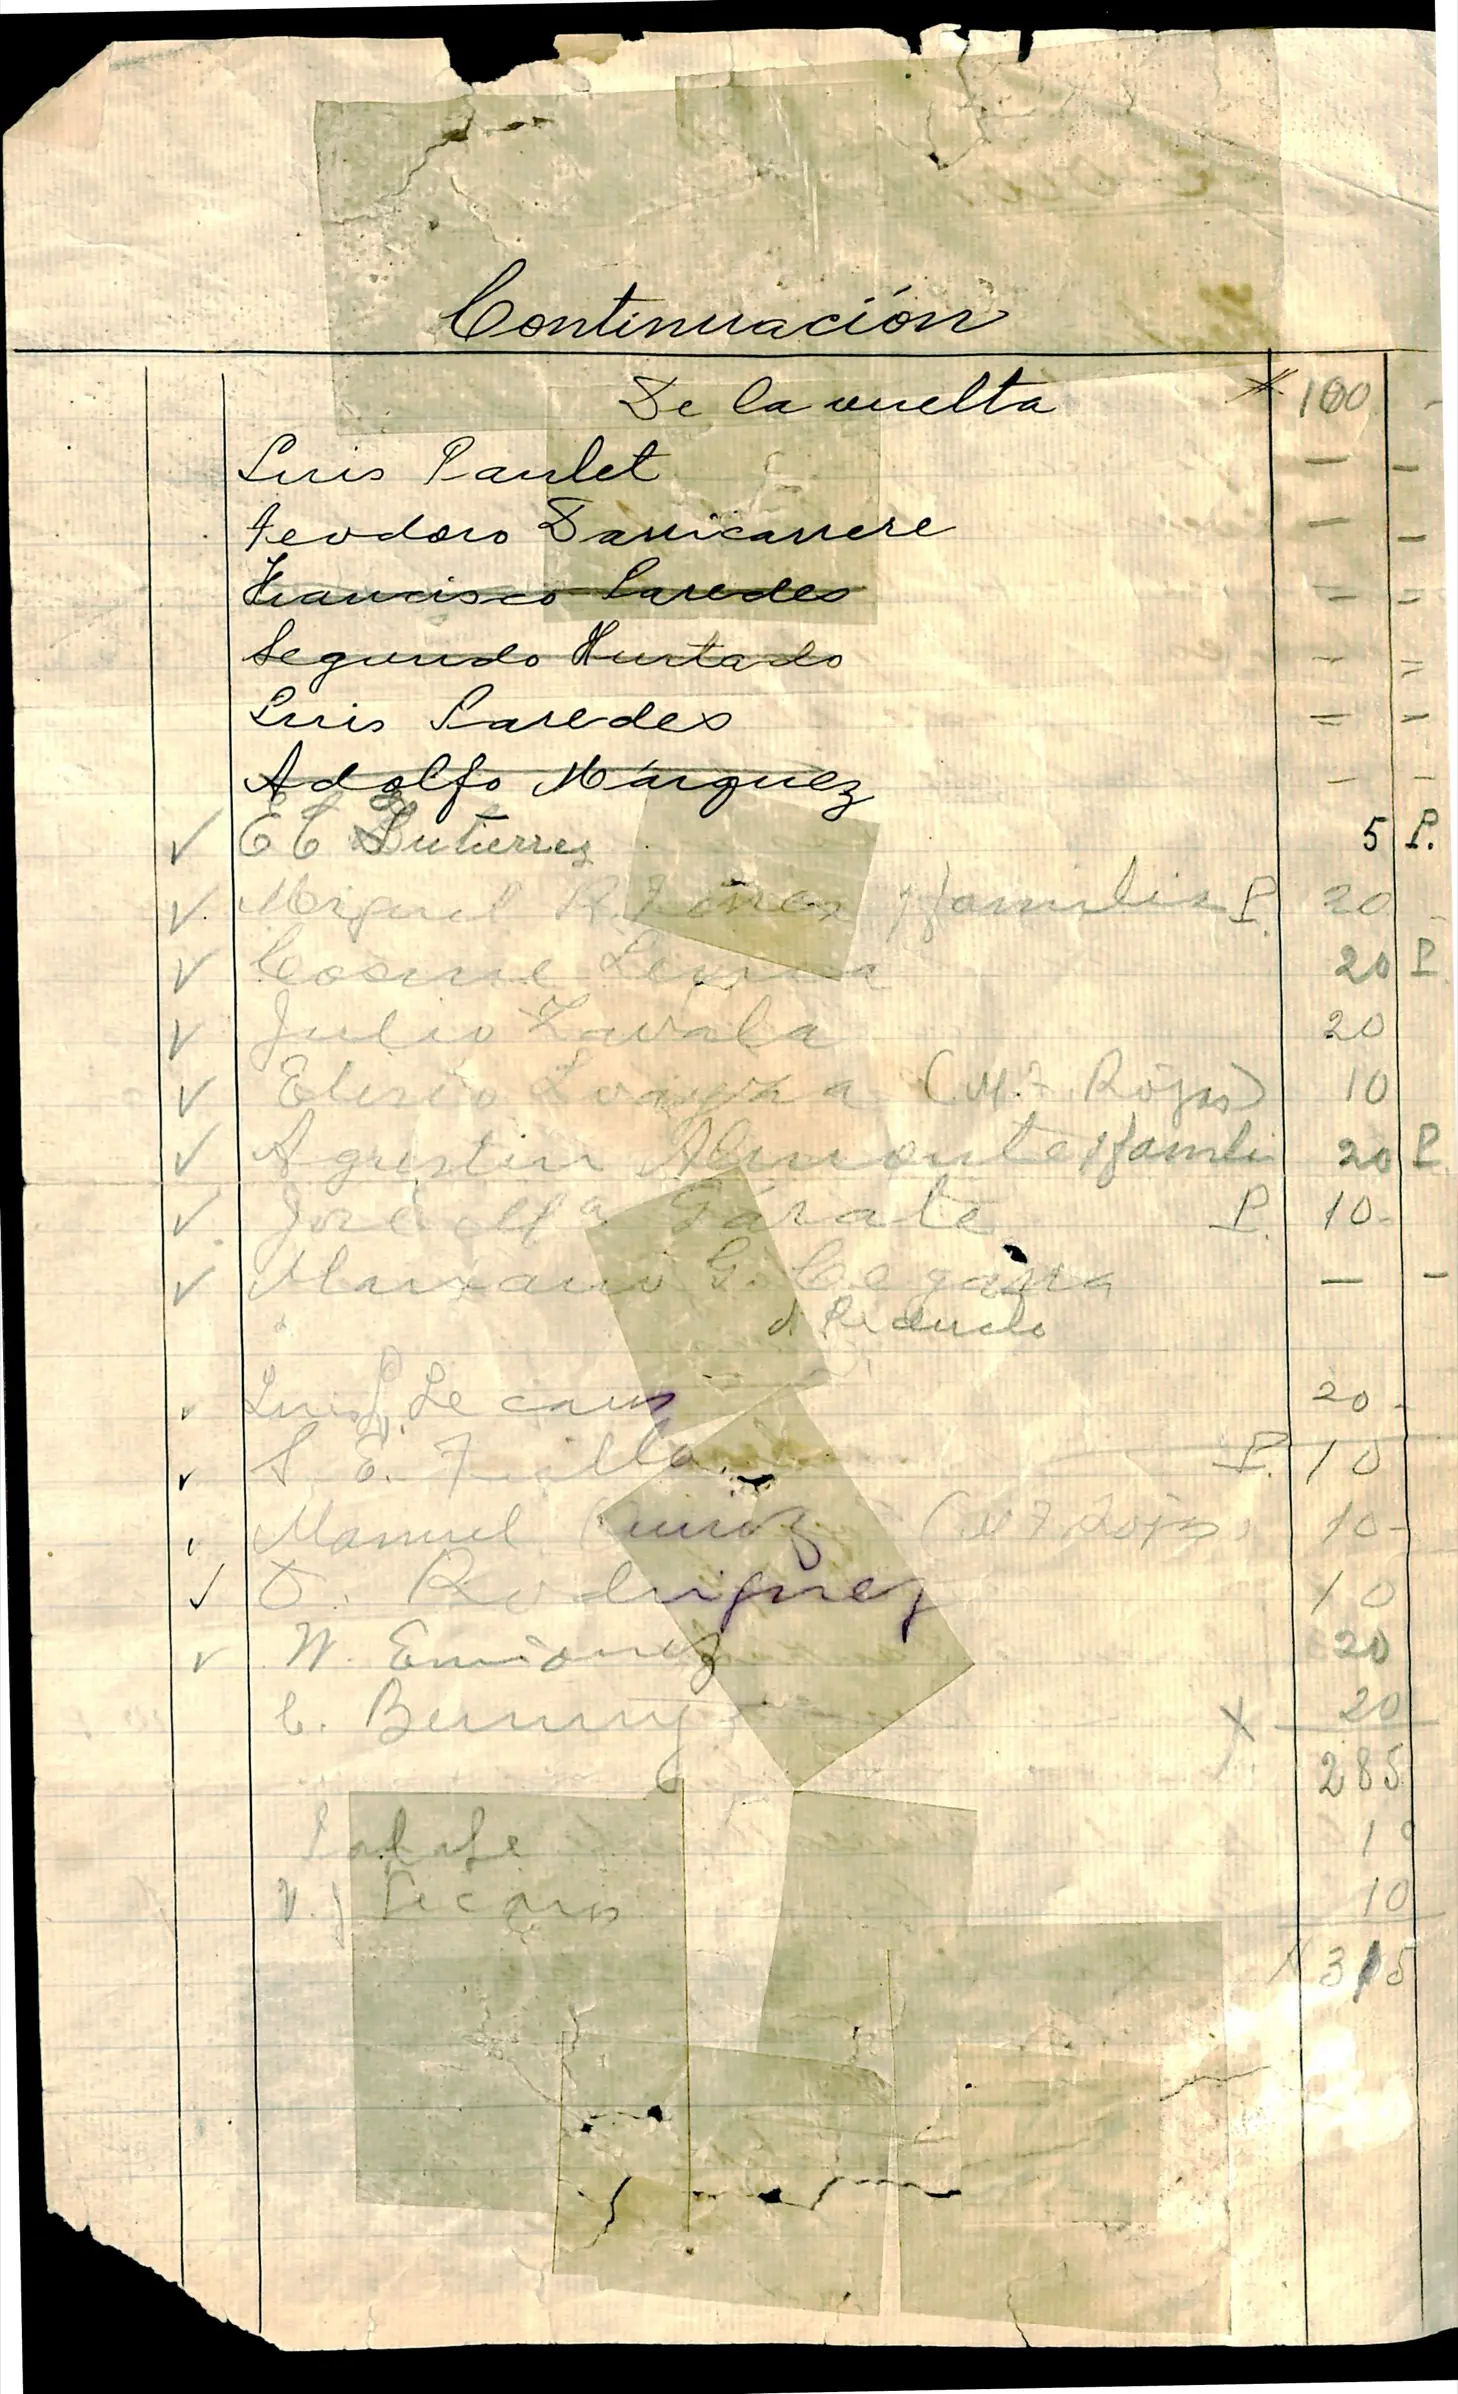 Continuación
De la vuelta 100 -
Luis Paulet - -
Teodoro Darricarrere - -
Francisco Paredes = =
Segundo Hurtado = =
Luis Paredes = =
Adolfo Márquez - -
✓ E C Gutierrez 5 P.
✓ Miguel R. y familia P. 20 -
✓ Cosme 20 P.
✓ Julio Zavala 20
✓ Eliseo Loayza (M. F. Rojas) 10
✓ Agustin Almonte y famili 20 P.
✓ José Mª Gárate P. 10 -
✓ Mariano G. Cegarra - -
✓ Luis P. Lecaros 20 -
✓ S. E. P. 10
✓ Manuel Muñoz (M F Rojas) 10 -
✓ O. Rodriguez 10
✓ N. 20
C. X 20
285
10
V. J Lecaros 10
315